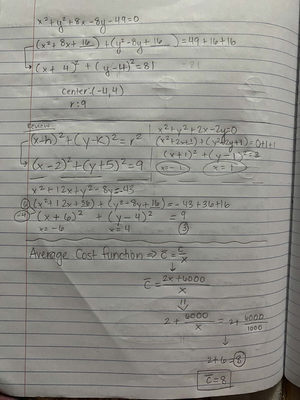 x² + y² + 8x - 8y - 49 = 0
(x² + 8x + 16) + (y² - 8y + 16) = 49 + 16 + 16
(x + 4)² + (y - 4)² = 81
center (-4, 4)
r: 9
(x-h)² + (y-k)² = r²
(x-2)² + (y+5)² = 9
x² + y² + 2x - 2y = 0
(x² + 2x + 1) + (y² - 2y + 1) = 0+1+1
(x+1)² + (y-1)²
x = -1
x = 1
x² + 12x + y² - 8y = -43
(x² + 12x + 36) + (y² - 8y + 16) = -43 + 36 + 16
(x + 6)² + (y - 4)² = 9
x = -6
x = 4
③
Average Cost function ⇒ c̄ = c/x
↓
C̄ = 2x + 6000 / x
=
2 + 6000/x = 2 + 6000/1000
↓
2 + 6 = 8
C̄ = 8